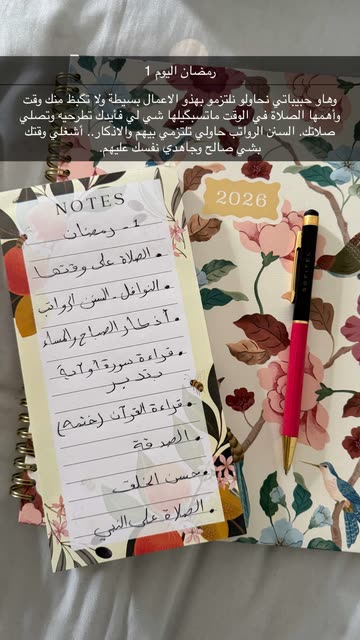 رمضان اليوم 1
وهاو حبيباتي نحاولو نلتزمو بهذو الاعمال بسيطة ولا تكبظ منك وقت
وأهمها الصلاة في الوقت ماتسبكيلها شي لي فأيدك تطرحيه وتصلي
صلاتك. السنن الرواتب حاولي تلتزمي بيهم والاذكار.. أشغلي وقتك
بشي صالح وجاهدي نفسك عليهم.
NOTES
2026
1- رمضان
• الصلاة على وقتها
• النوافل - السنن الرواتب
• أذكار الصباح والمساء
• قراءة سورة أو آية
بتدبر
• قراءة القرآن (ختمة)
• الصدقة
• حسن الخلق
• الصلاة على النبي